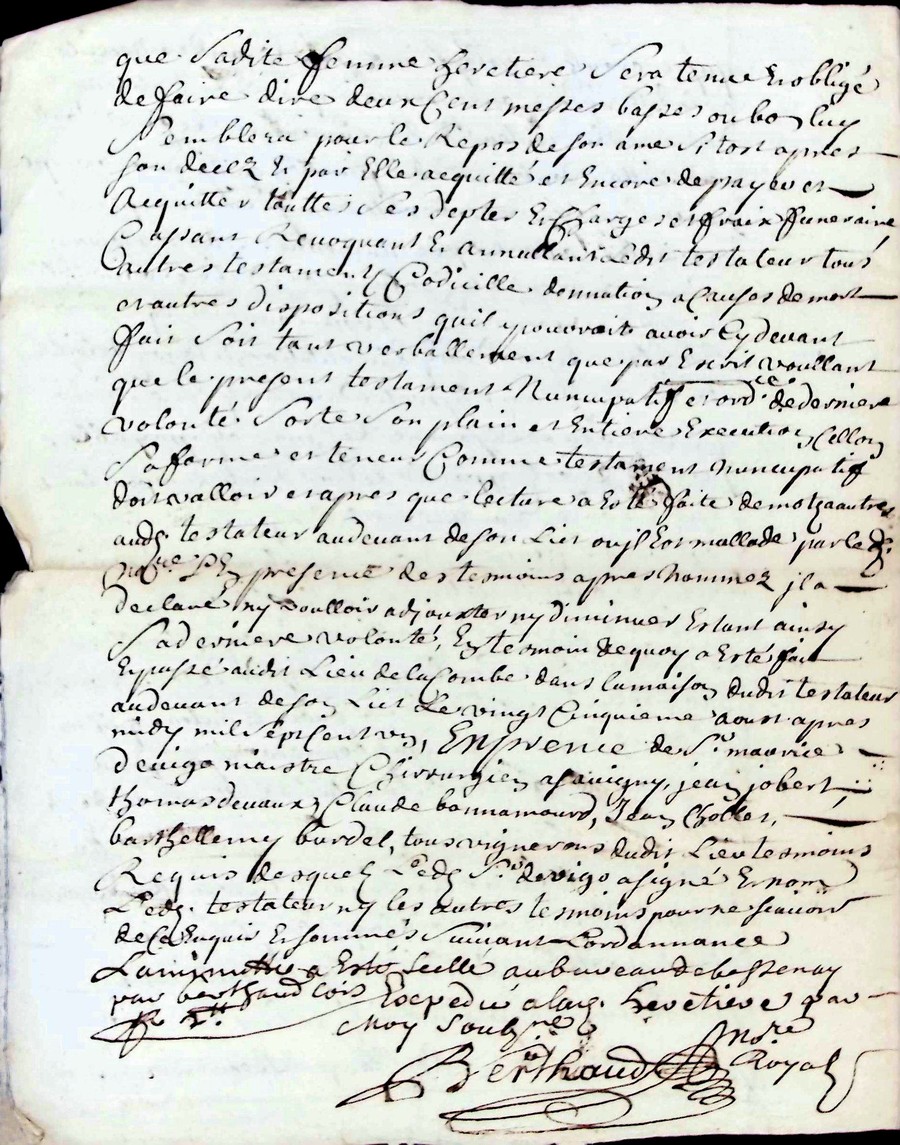 que Sadite femme heretiere Sera tenue Et obligé
de faire dire deux Cent messes basses ou bon luy
Semblera pour le Repos de son ame Si tost apres
son decez Et par Elle acquitté et Encore de payer et
Acquitter touttes Ses deptes Et Charges et fraix funeraire
Cassant Revoquant Et annullant Ledit testateur tous
autres testament Codicille donnation a Causes de mort
et autres dispositions quil pouvoit avoir Cy devant
fait Soit tant verballement que par Escrit voullant
que le present testament Nuncupatif et ord.ce de derniere
volonté Sorte Son plain et Entiere Execution Sellon
Sa forme et teneur Comme testament nuncupatif
doit valloir et apres que lecture a Esté faite de mot a autres
aud. testateur au devant de son Lict ou jl Est mallade par le d.
no.re En presence des tesmoins apres nommez jl a
declaré ny voulloir adjouxter ny diminuer Estant ainsy
Sa derniere volonté, En tesmoin de quoy a Esté fait
Et passé audit Lieu de la Combe dans la maison dudit testateur
au devant de son Lict Le vingt Cinquieme aoust apres
midy mil Sept Cent un, En presence de Sr. maurice
Devigo maistre Chirurgien a Savigny, jean jobert
thomas devaux, Claude bonnamourd, Jean Chollet,
barthellemy burdel, tous vignerons dudit Lieu tesmoins
Requis desquels Led. Sr. devigo a signé Et non
Led. testateur ny les autres tesmoins pour ne scavoir
de Ce Enquis Et sommés Suivant Lordonnance
La minutte a Esté Scellé au bureau de bessenay
par berthaud Cois Expedié a lad. heretiere par
Moy Soubz.né
Berthaud No.re Royal